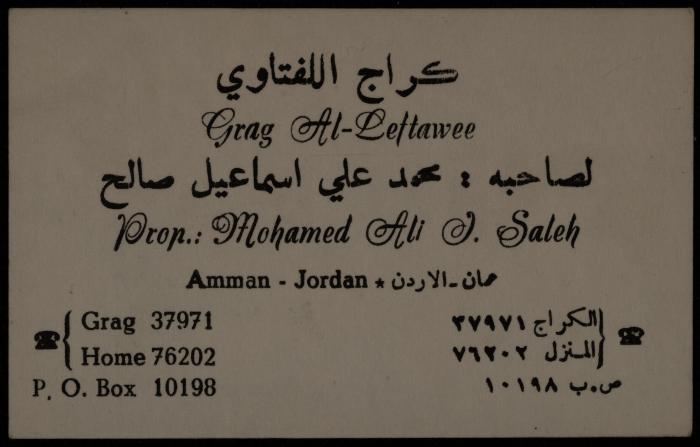 كراج اللفتاوي
Grag Al-Leftawee
لصاحبه : محمد علي اسماعيل صالح
Prop.: Mohamed Ali I. Saleh
Amman - Jordan * عمان - الاردن
Grag 37971
الكراج ٣٧٩٧١
Home 76202
المنزل ٧٦٢٠٢
P. O. Box 10198
ص.ب ١٠١٩٨